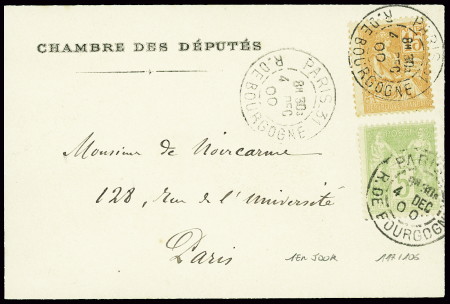 CHAMBRE DES DÉPUTÉS
PARIS 31
4 DEC
00
R. DE BOURGOGNE
PARIS
4 DEC
00
R. DE BOURGOGNE
PARIS
4 DEC
00
R. DE BOURGOGNE
Monsieur de Noircarme
128, Rue de l'Université
Paris
1ER JOUR